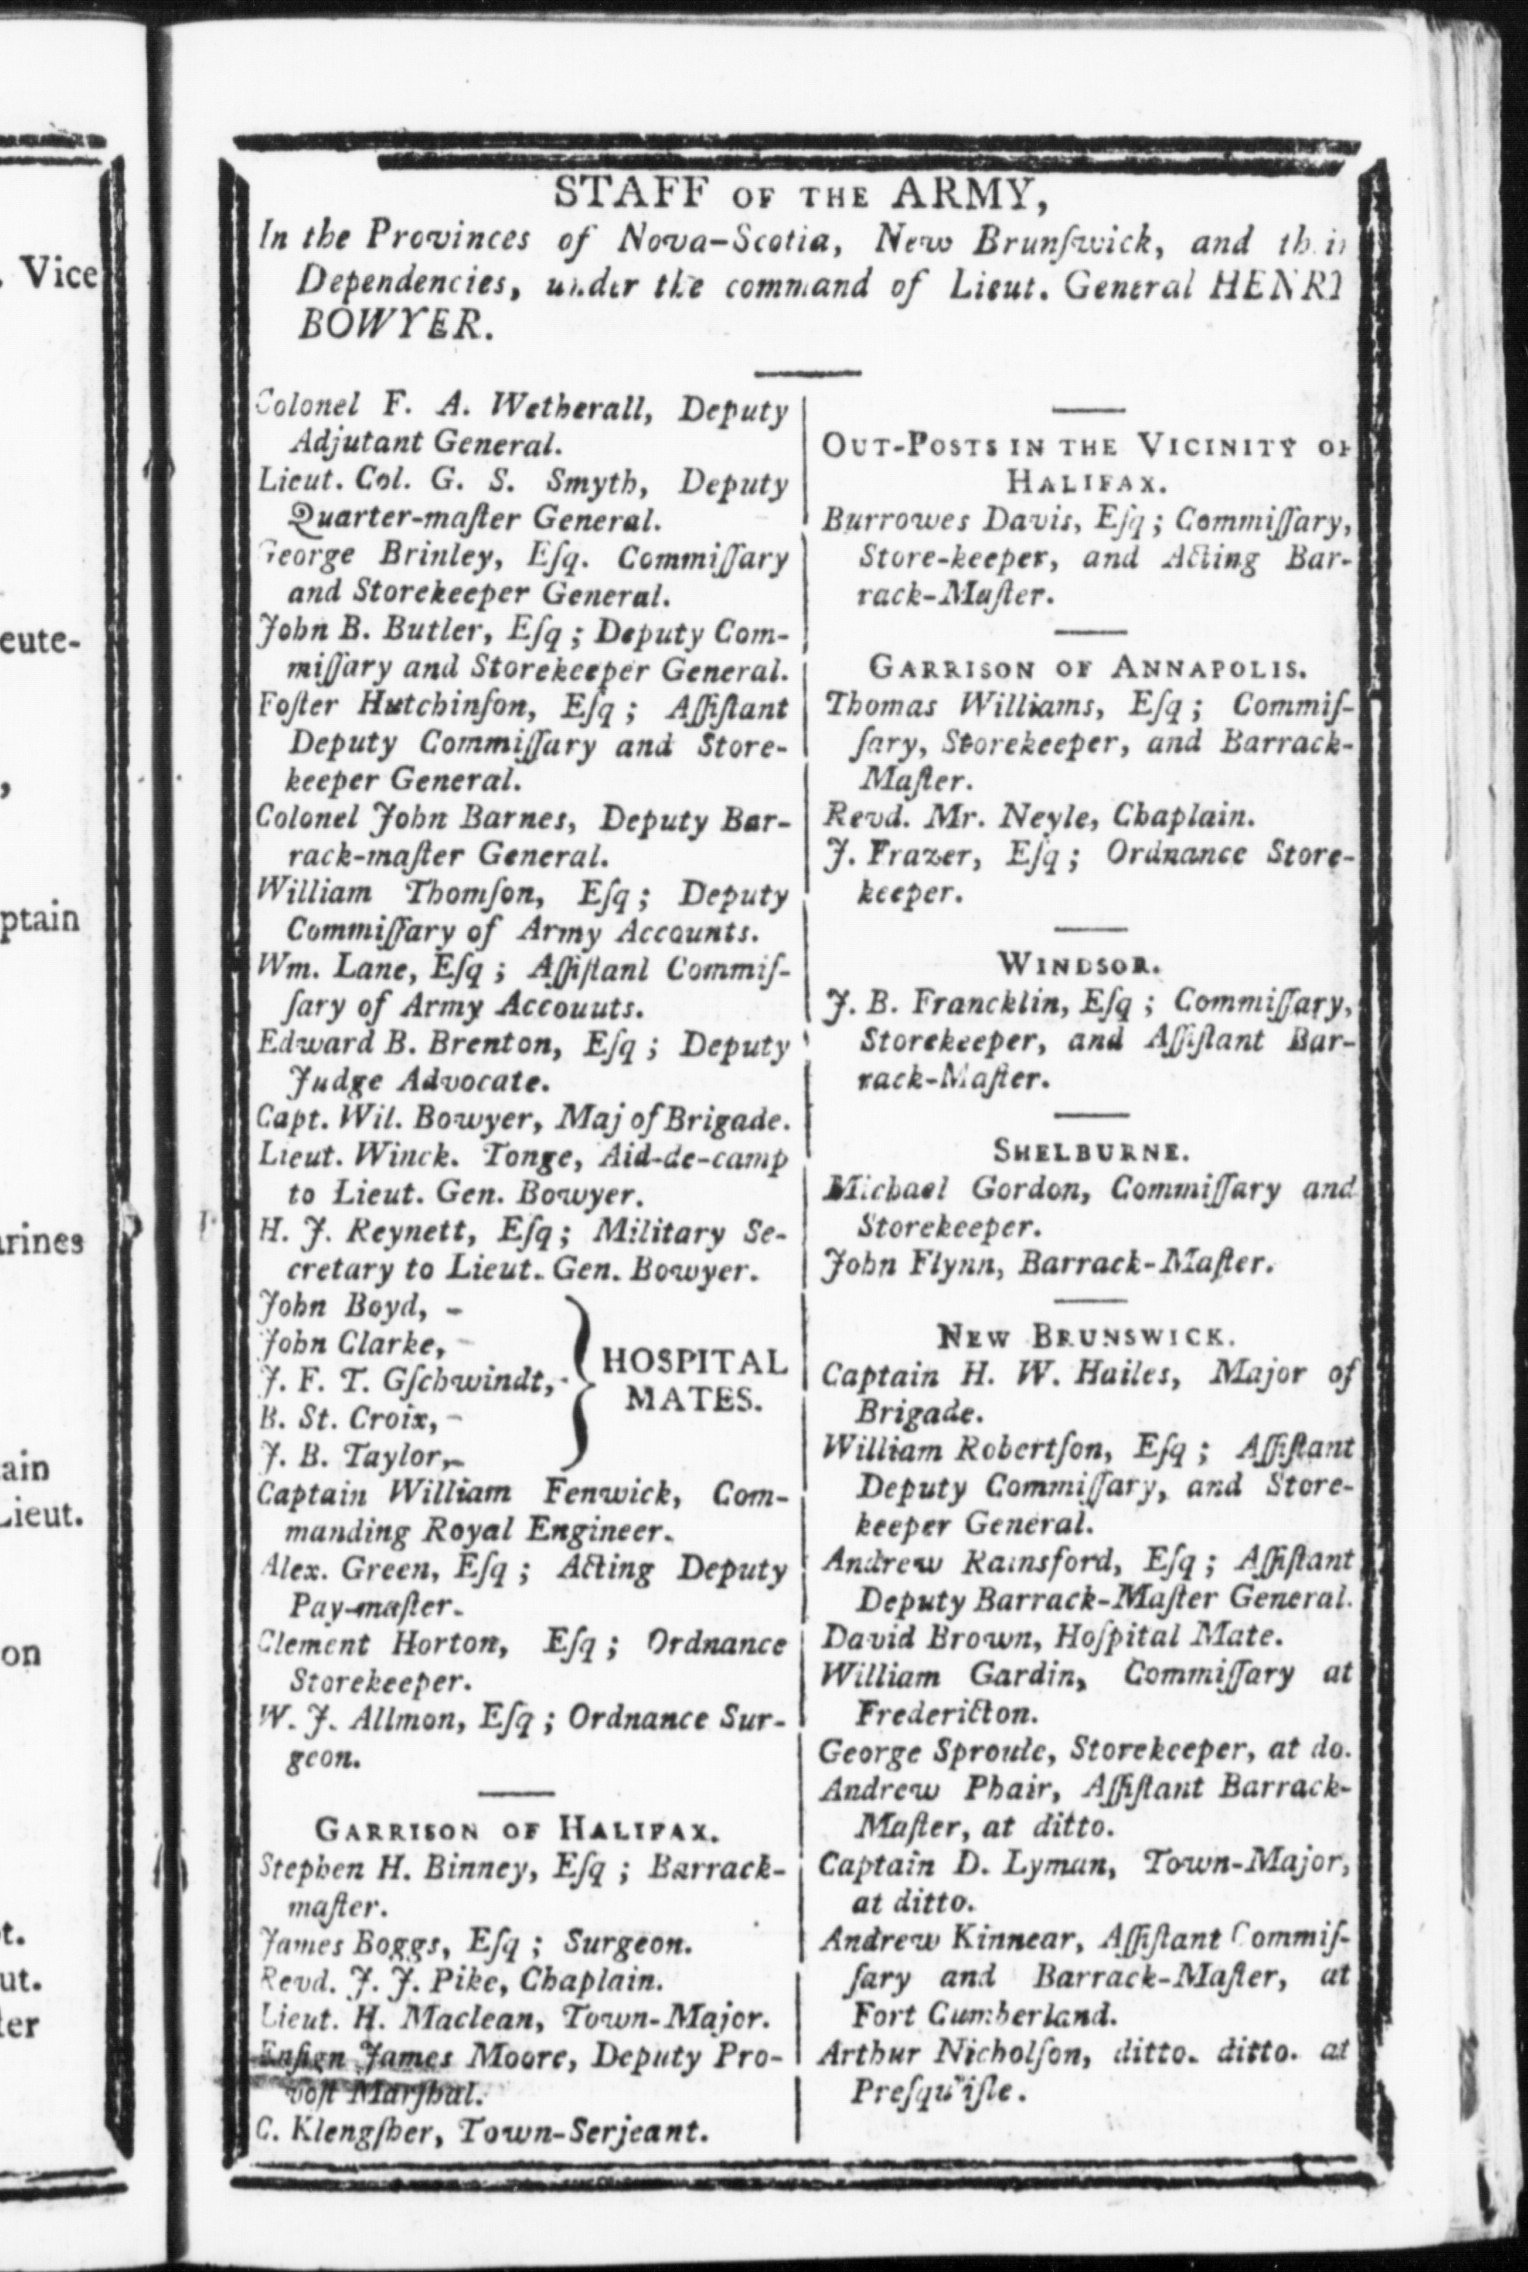 Vice
eute-
,
ptain
rines
ain
Lieut.
on
t.
ut.
ter
STAFF OF THE ARMY,
In the Provinces of Nova-Scotia, New Brunſwick, and their
Dependencies, under the command of Lieut. General HENRY
BOWYER.
Colonel F. A. Wetherall, Deputy
Adjutant General.
Lieut. Col. G. S. Smyth, Deputy
Quarter-maſter General.
George Brinley, Eſq. Commiſſary
and Storekeeper General.
John B. Butler, Eſq; Deputy Com-
miſſary and Storekeeper General.
Foſter Hutchinſon, Eſq; Aſſiſtant
Deputy Commiſſary and Store-
keeper General.
Colonel John Barnes, Deputy Bar-
rack-maſter General.
William Thomſon, Eſq; Deputy
Commiſſary of Army Accounts.
Wm. Lane, Eſq; Aſſiſtanl Commiſ-
ſary of Army Accouuts.
Edward B. Brenton, Eſq; Deputy
Judge Advocate.
Capt. Wil. Bowyer, Maj of Brigade.
Lieut. Winck. Tonge, Aid-de-camp
to Lieut. Gen. Bowyer.
H. J. Reynett, Eſq; Military Se-
cretary to Lieut. Gen. Bowyer.
John Boyd, -
John Clarke, -
J. F. T. Gſchwindt, -
B. St. Croix, -
J. B. Taylor, -
HOSPITAL
MATES.
Captain William Fenwick, Com-
manding Royal Engineer.
Alex. Green, Eſq; Acting Deputy
Pay-maſter.
Clement Horton, Eſq; Ordnance
Storekeeper.
W. J. Allmon, Eſq; Ordnance Sur-
geon.
GARRISON OF HALIFAX.
Stephen H. Binney, Eſq; Barrack-
maſter.
James Boggs, Eſq; Surgeon.
Revd. J. J. Pike, Chaplain.
Lieut. H. Maclean, Town-Major.
Enſign James Moore, Deputy Pro-
voſt Marſhal.
C. Klengſher, Town-Serjeant.
OUT-POSTS IN THE VICINITY OF
HALIFAX.
Burrowes Davis, Eſq; Commiſſary,
Store-keeper, and Acting Bar-
rack-Maſter.
GARRISON OF ANNAPOLIS.
Thomas Williams, Eſq; Commiſ-
ſary, Storekeeper, and Barrack-
Maſter.
Revd. Mr. Neyle, Chaplain.
J. Frazer, Eſq; Ordnance Store-
keeper.
WINDSOR.
J. B. Francklin, Eſq; Commiſſary,
Storekeeper, and Aſſiſtant Bar-
rack-Maſter.
SHELBURNE.
Michael Gordon, Commiſſary and
Storekeeper.
John Flynn, Barrack-Maſter.
NEW BRUNSWICK.
Captain H. W. Hailes, Major of
Brigade.
William Robertſon, Eſq; Aſſiſtant
Deputy Commiſſary, and Store-
keeper General.
Andrew Rainsford, Eſq; Aſſiſtant
Deputy Barrack-Maſter General.
David Brown, Hoſpital Mate.
William Gardin, Commiſſary at
Fredericton.
George Sproule, Storekeeper, at do.
Andrew Phair, Aſſiſtant Barrack-
Maſter, at ditto.
Captain D. Lyman, Town-Major,
at ditto.
Andrew Kinnear, Aſſiſtant Commiſ-
ſary and Barrack-Maſter, at
Fort Cumberland.
Arthur Nicholſon, ditto. ditto. at
Preſqu'iſle.